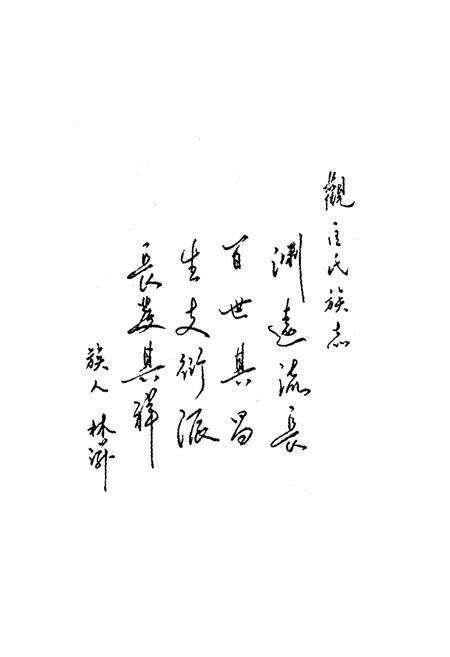 觀匡氏族志
淵遠流長
百世其昌
生支衍派
長發其祥
族人 林